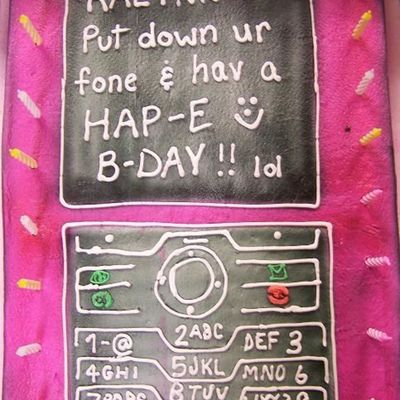 Put down ur
fone & hav a
HAP-E
B-DAY!! lol
1-@ 2ABC DEF 3
4GHI 5JKL MNO 6
8TUV